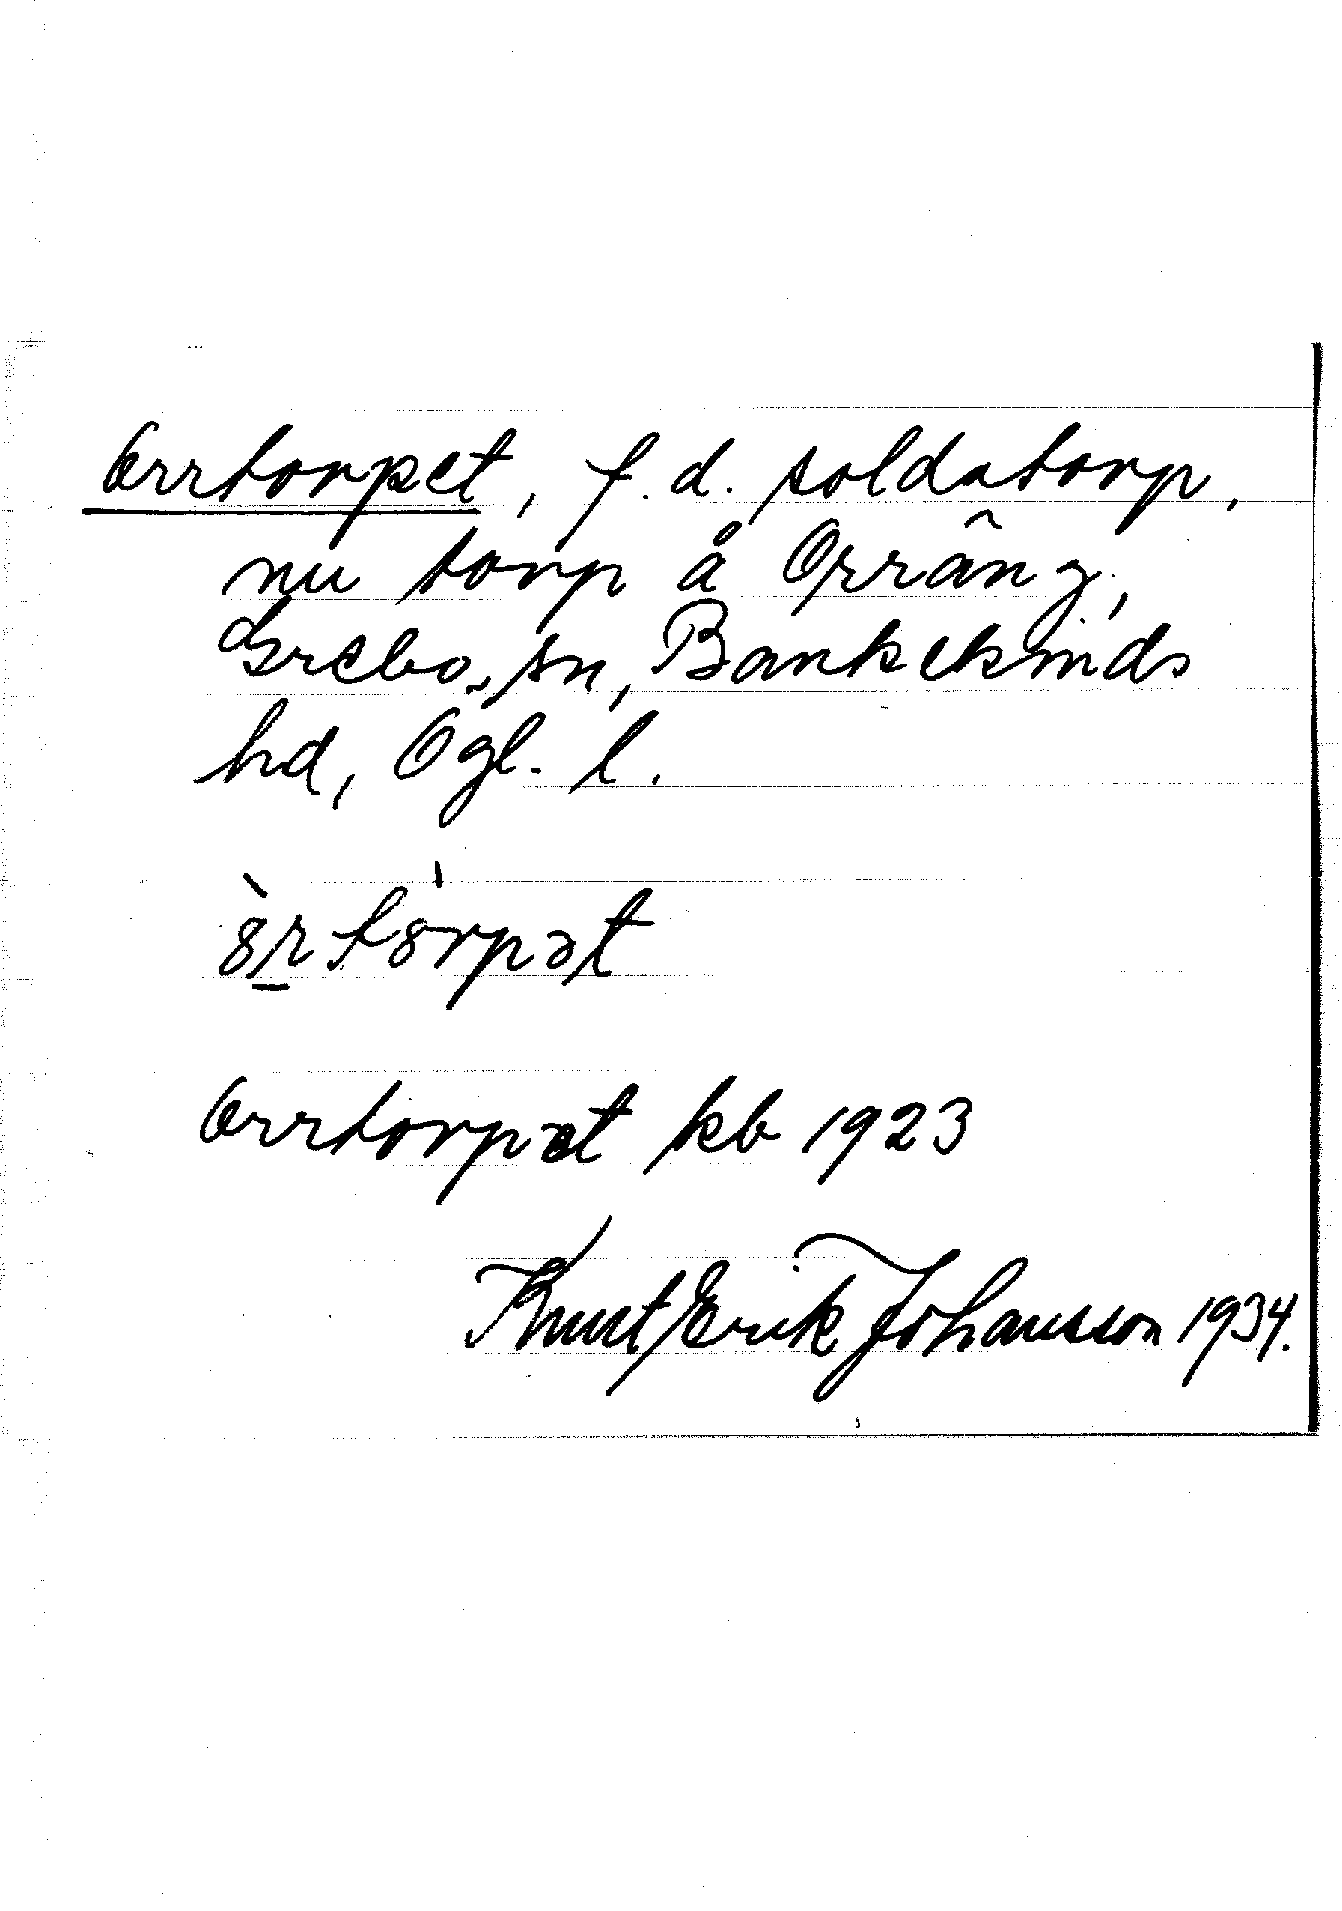 Orrtorpet, f. d. soldatorp,
nu torp å Orräng,
Grebo sn, Bankekinds
hd, Ögl. l.
Orrtorpet kb 1923
Knut Erik Johansson 1934.